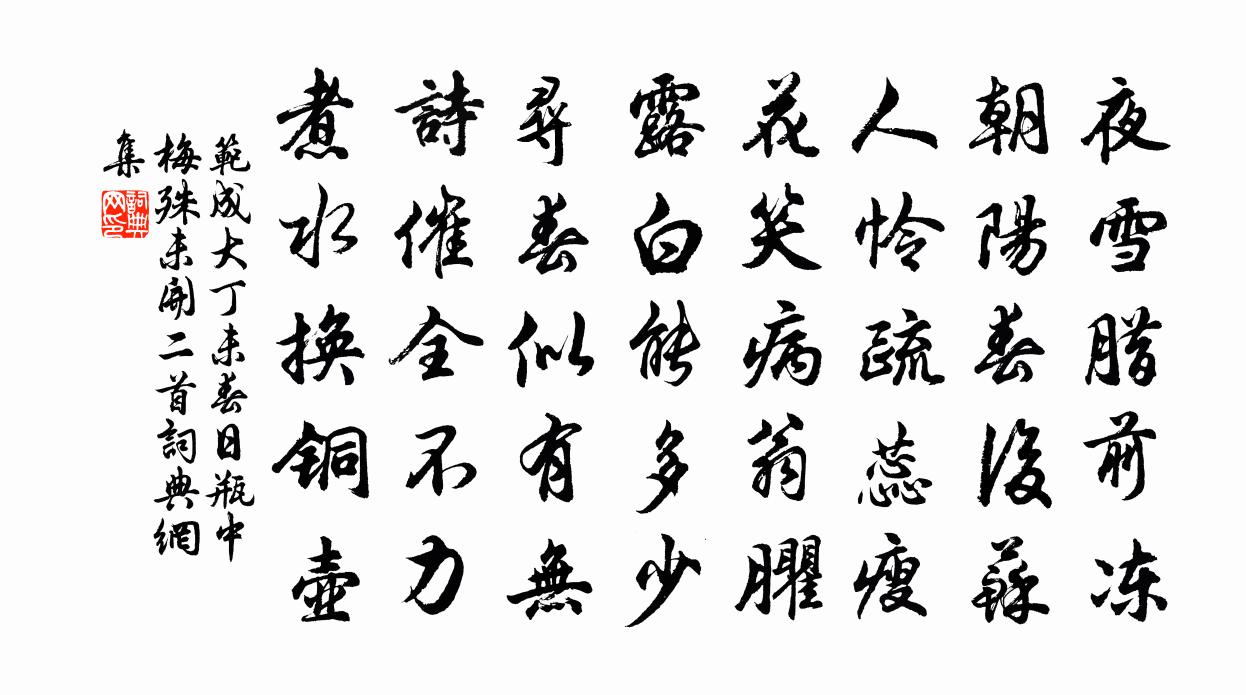 夜雪腊前冻
朝陽春後蘇
人怜疏蕊瘦
花笑病翁臞
露白能多少
尋春似有無
詩催全不力
煮水换銅壺
範成大丁未春日瓶中
梅殊未開二首詞典網
集
詞典
网印